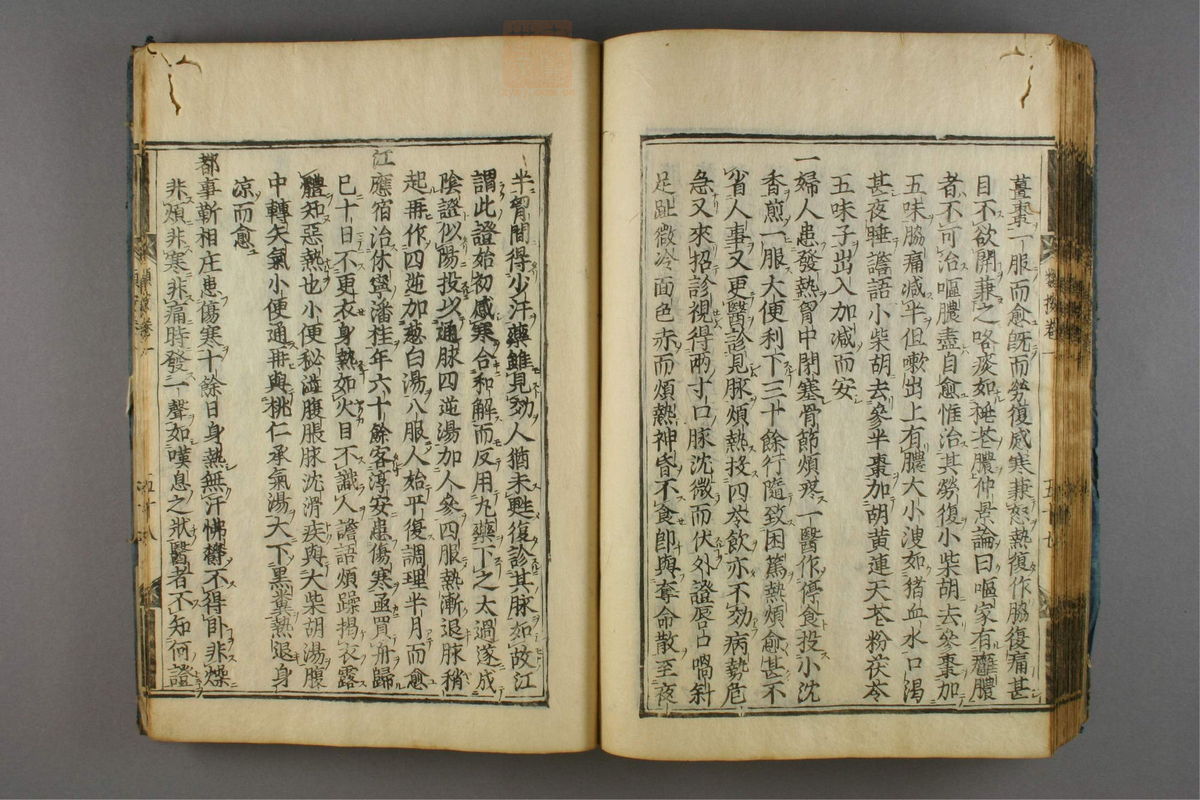 薑棗一服而愈既而勞復感寒兼怒熱復作脇復痛甚
目不欲開兼之咯痰如桃花膿仲景論曰嘔家有癰膿
者不可治嘔膿盡自愈惟治其勞復小柴胡去參棗加
五味脇痛減半但嗽出上有膿大小溲如猪血水口渴
甚夜睡譫語小柴胡去參半棗加胡黄連天花粉茯苓
五味子出入加減而安
一婦人患發熱胃中閉塞骨節煩疼一醫作停食投小沈
香煎一服大便利下三十餘行隨致困篤熱煩愈甚不
省人事又更醫診見脉煩熱投四苓飲亦不効病勢危
急又來招診視得兩寸口脉沈微而伏外證唇口喎斜
足趾微冷面色赤而煩熱神昏不食卽與奪命散至夜
半胃間得少汗藥雖見効人猶未甦復診其脉如故江
謂此證始初感寒合和解而反用丸藥下之太過遂成
陰證似陽投以通脉四逆湯加人參四服熱漸退脉稍
起再作四逆加葱白湯八服人始平復調理半月而愈
江應宿治休寧潘桂年六十餘客淳安患傷寒亟買舟歸
已十日不更衣身熱如火目不識人譫語煩躁揭衣露
體知惡熱也小便秘澁腹脹脉沈滑疾與大柴胡湯腹
中轉矢氣小便通再與桃仁承氣湯大下黒糞熱退身
凉而愈
都事靳相庄患傷寒十餘日身熱無汗怫鬱不得卧非燥
非煩非寒非痛時發一聲如嘆息之狀醫者不知何證